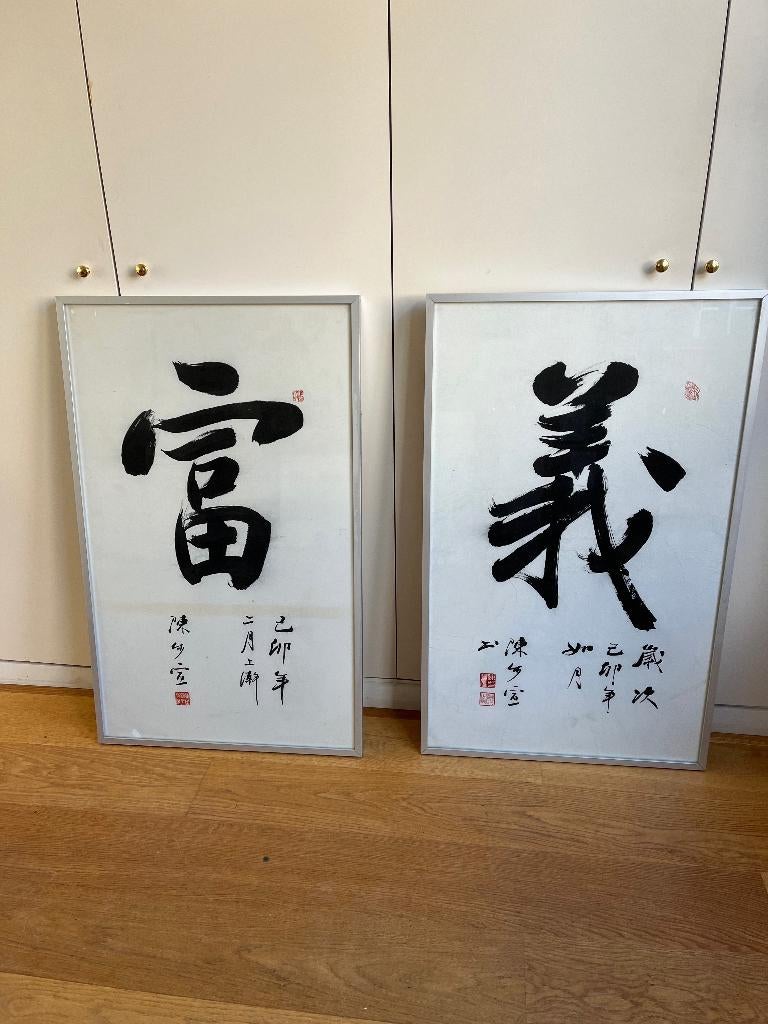 富
己卯年
二月上澣
陳少宣
義
歲次
己卯年
如月
陳少宣
书